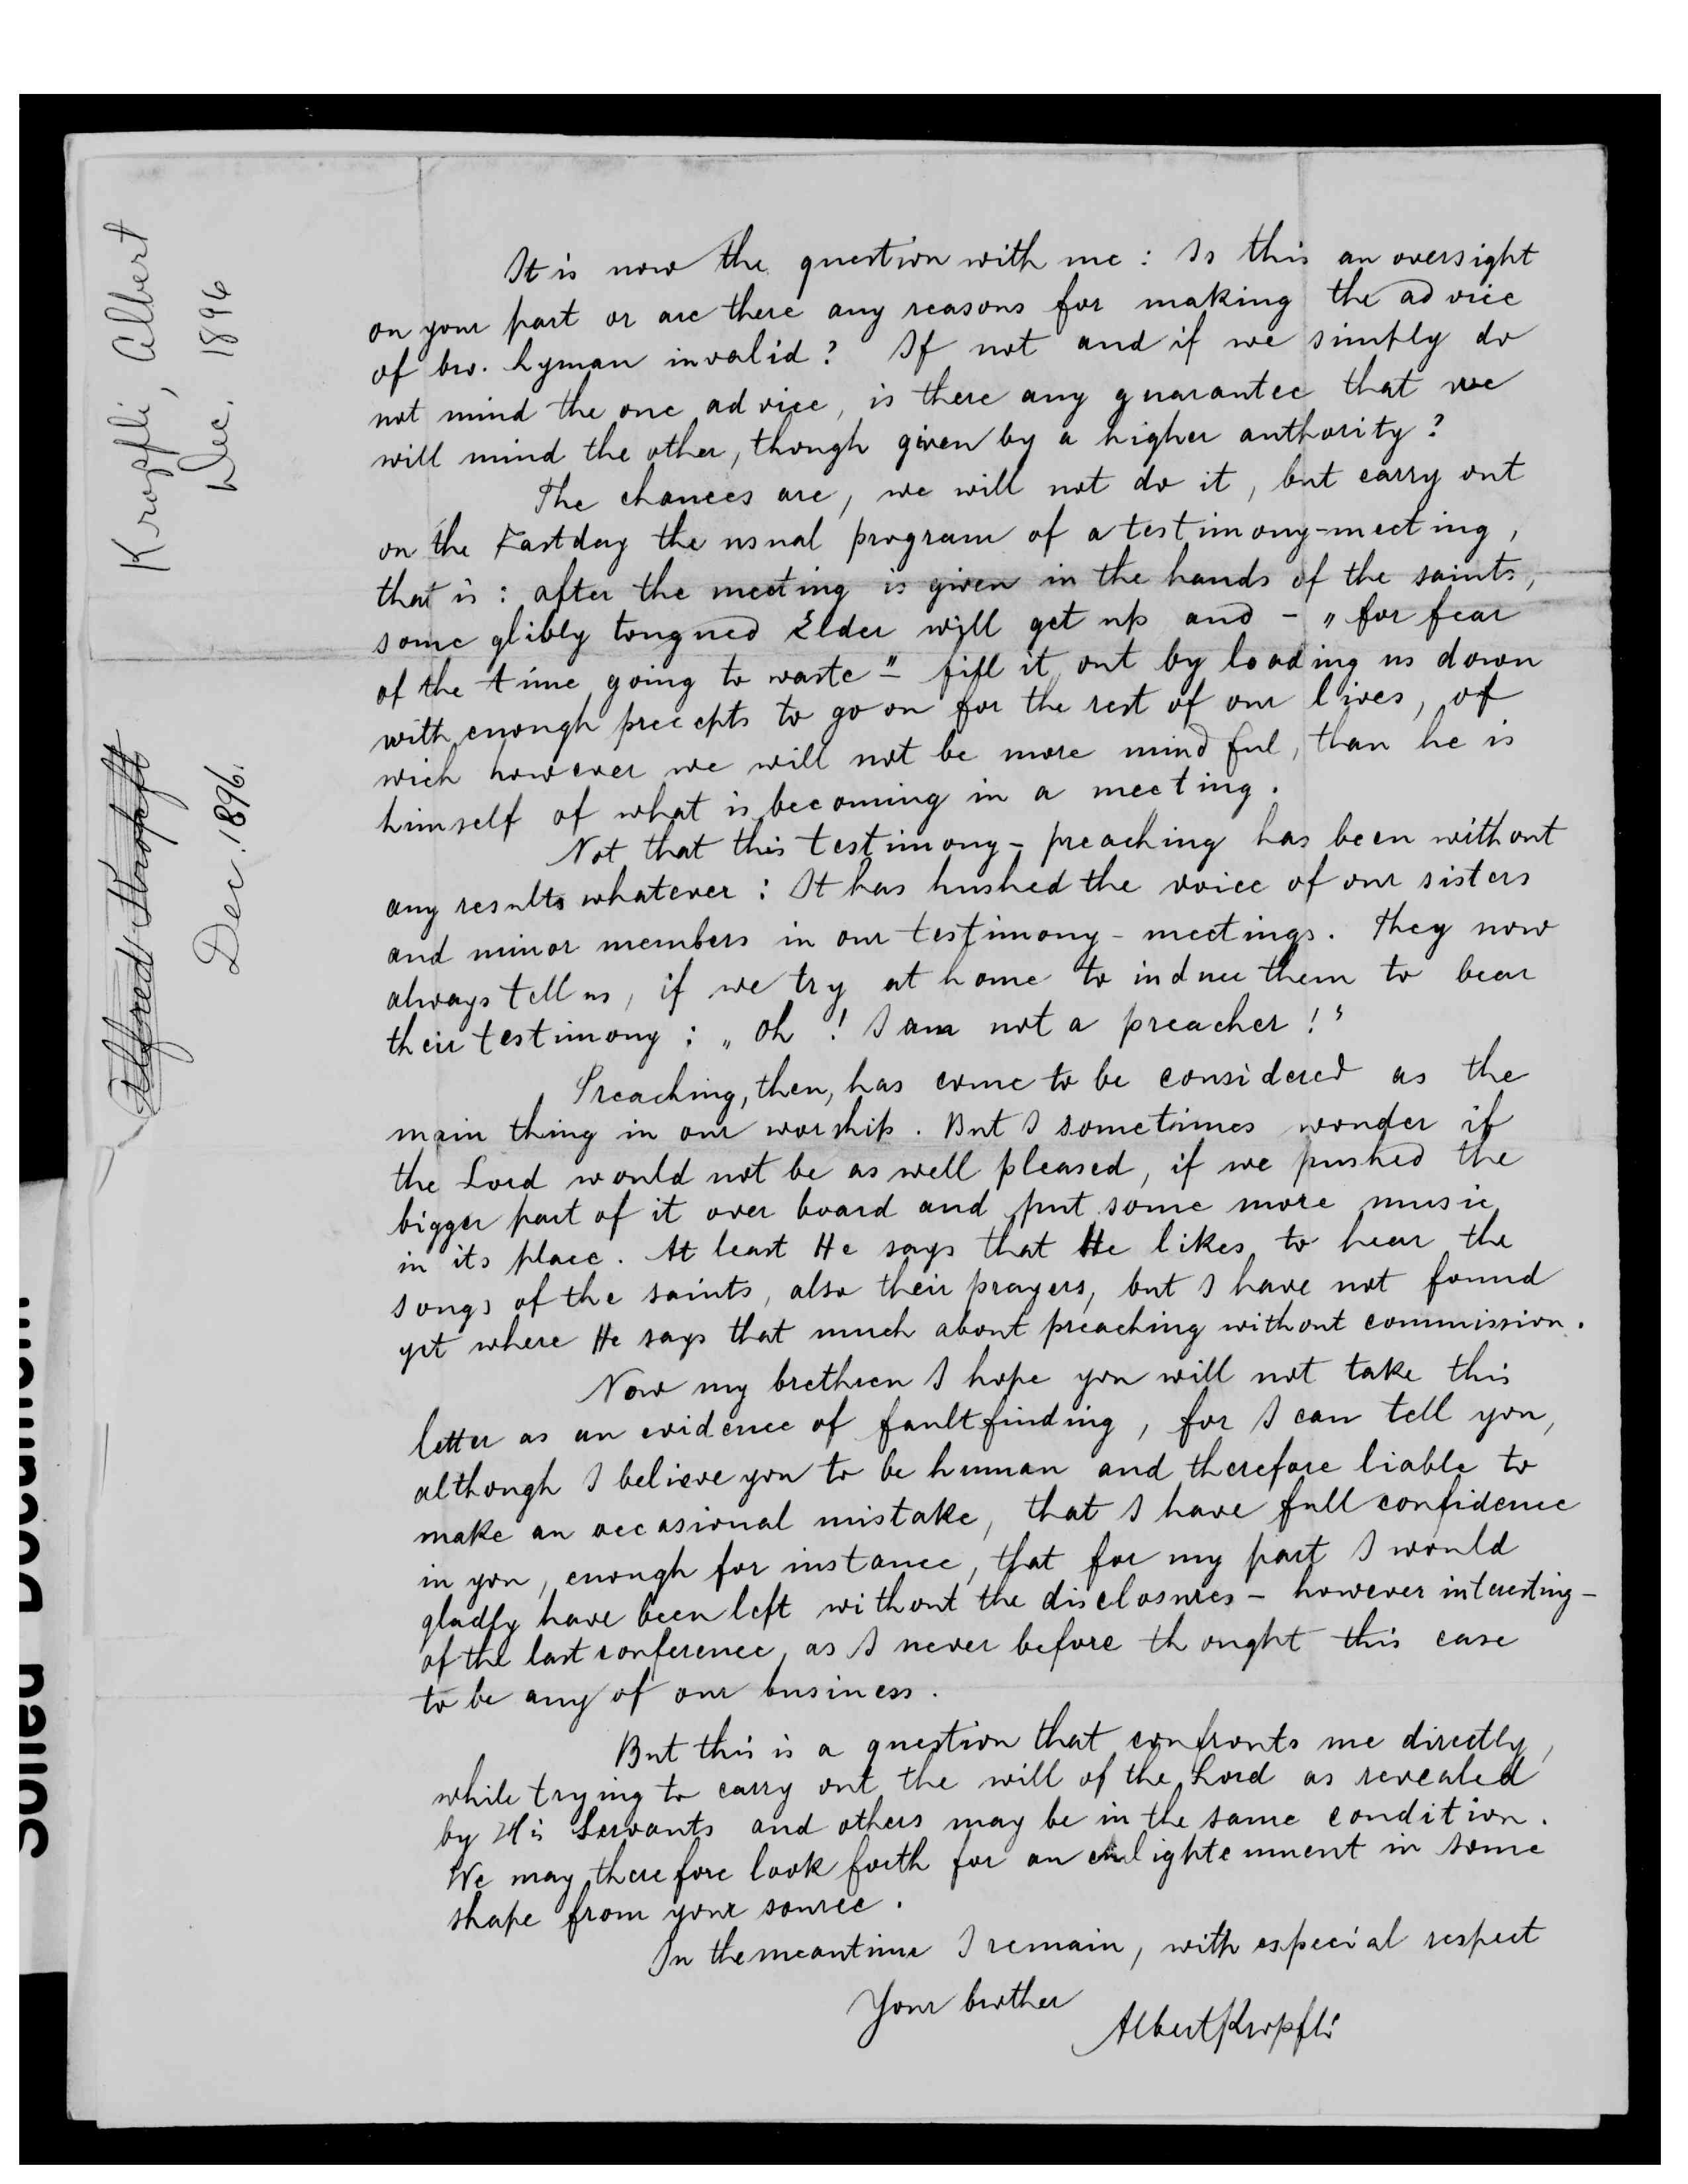 Kropfli, Albert
Dec. 1896
Alfred Kropfli
Dec. 1896.
It is now the question with me: Is this an oversight
on your part or are there any reasons for making the advice
of bro. Lyman invalid? If not and if we simply do
not mind the one advice, is there any guarantee that we
will mind the other, though given by a higher authority?
The chances are, we will not do it, but carry out
on the Fastday the usual program of a testimony-meeting,
that is: after the meeting is given in the hands of the saints,
some glibly tongued Elder will get up and – „for fear
of the time going to waste" – fill it out by loading us down
with enough precepts to go on for the rest of our lives, of
wich however we will not be more mindful, than he is
himself of what is becoming in a meeting.
Not that this testimony-preaching has been without
any results whatever: It has hushed the voice of our sisters
and minor members in our testimony-meetings. They now
always tell us, if we try at home to induce them to bear
their testimony: „Oh! I am not a preacher!"
Preaching, then, has come to be considered as the
main thing in our worship. But I sometimes wonder if
the Lord would not be as well pleased, if we pushed the
bigger part of it over board and put some more music
in its place. At least He says that He likes to hear the
songs of the saints, also their prayers, but I have not found
yet where He says that much about preaching without commission.
Now my brethren I hope you will not take this
letter as an evidence of faultfinding, for I can tell you,
although I believe you to be human and therefore liable to
make an occasional mistake, that I have full confidence
in you, enough for instance, that for my part I would
gladly have been left without the disclosures – however interesting –
of the last conference, as I never before thought this case
to be any of our business.
But this is a question that confronts me directly,
while trying to carry out the will of the Lord as revealed
by His Servants and others may be in the same condition.
We may therefore look forth for an enlightenment in some
shape from your source.
In the meantime I remain, with especial respect
Your brother
Albert Kropfli
Soiled Document